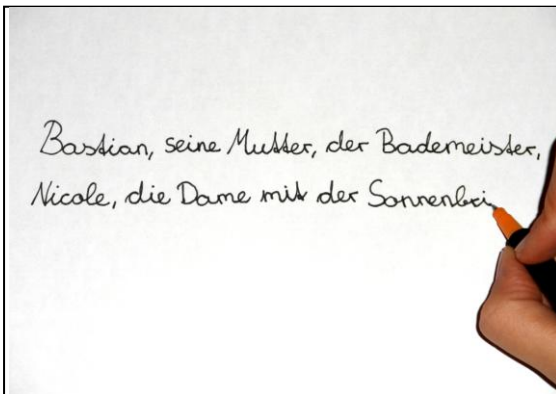 Bastian, seine Mutter, der Bademeister,
Nicole, die Dame mit der Sonnenbri